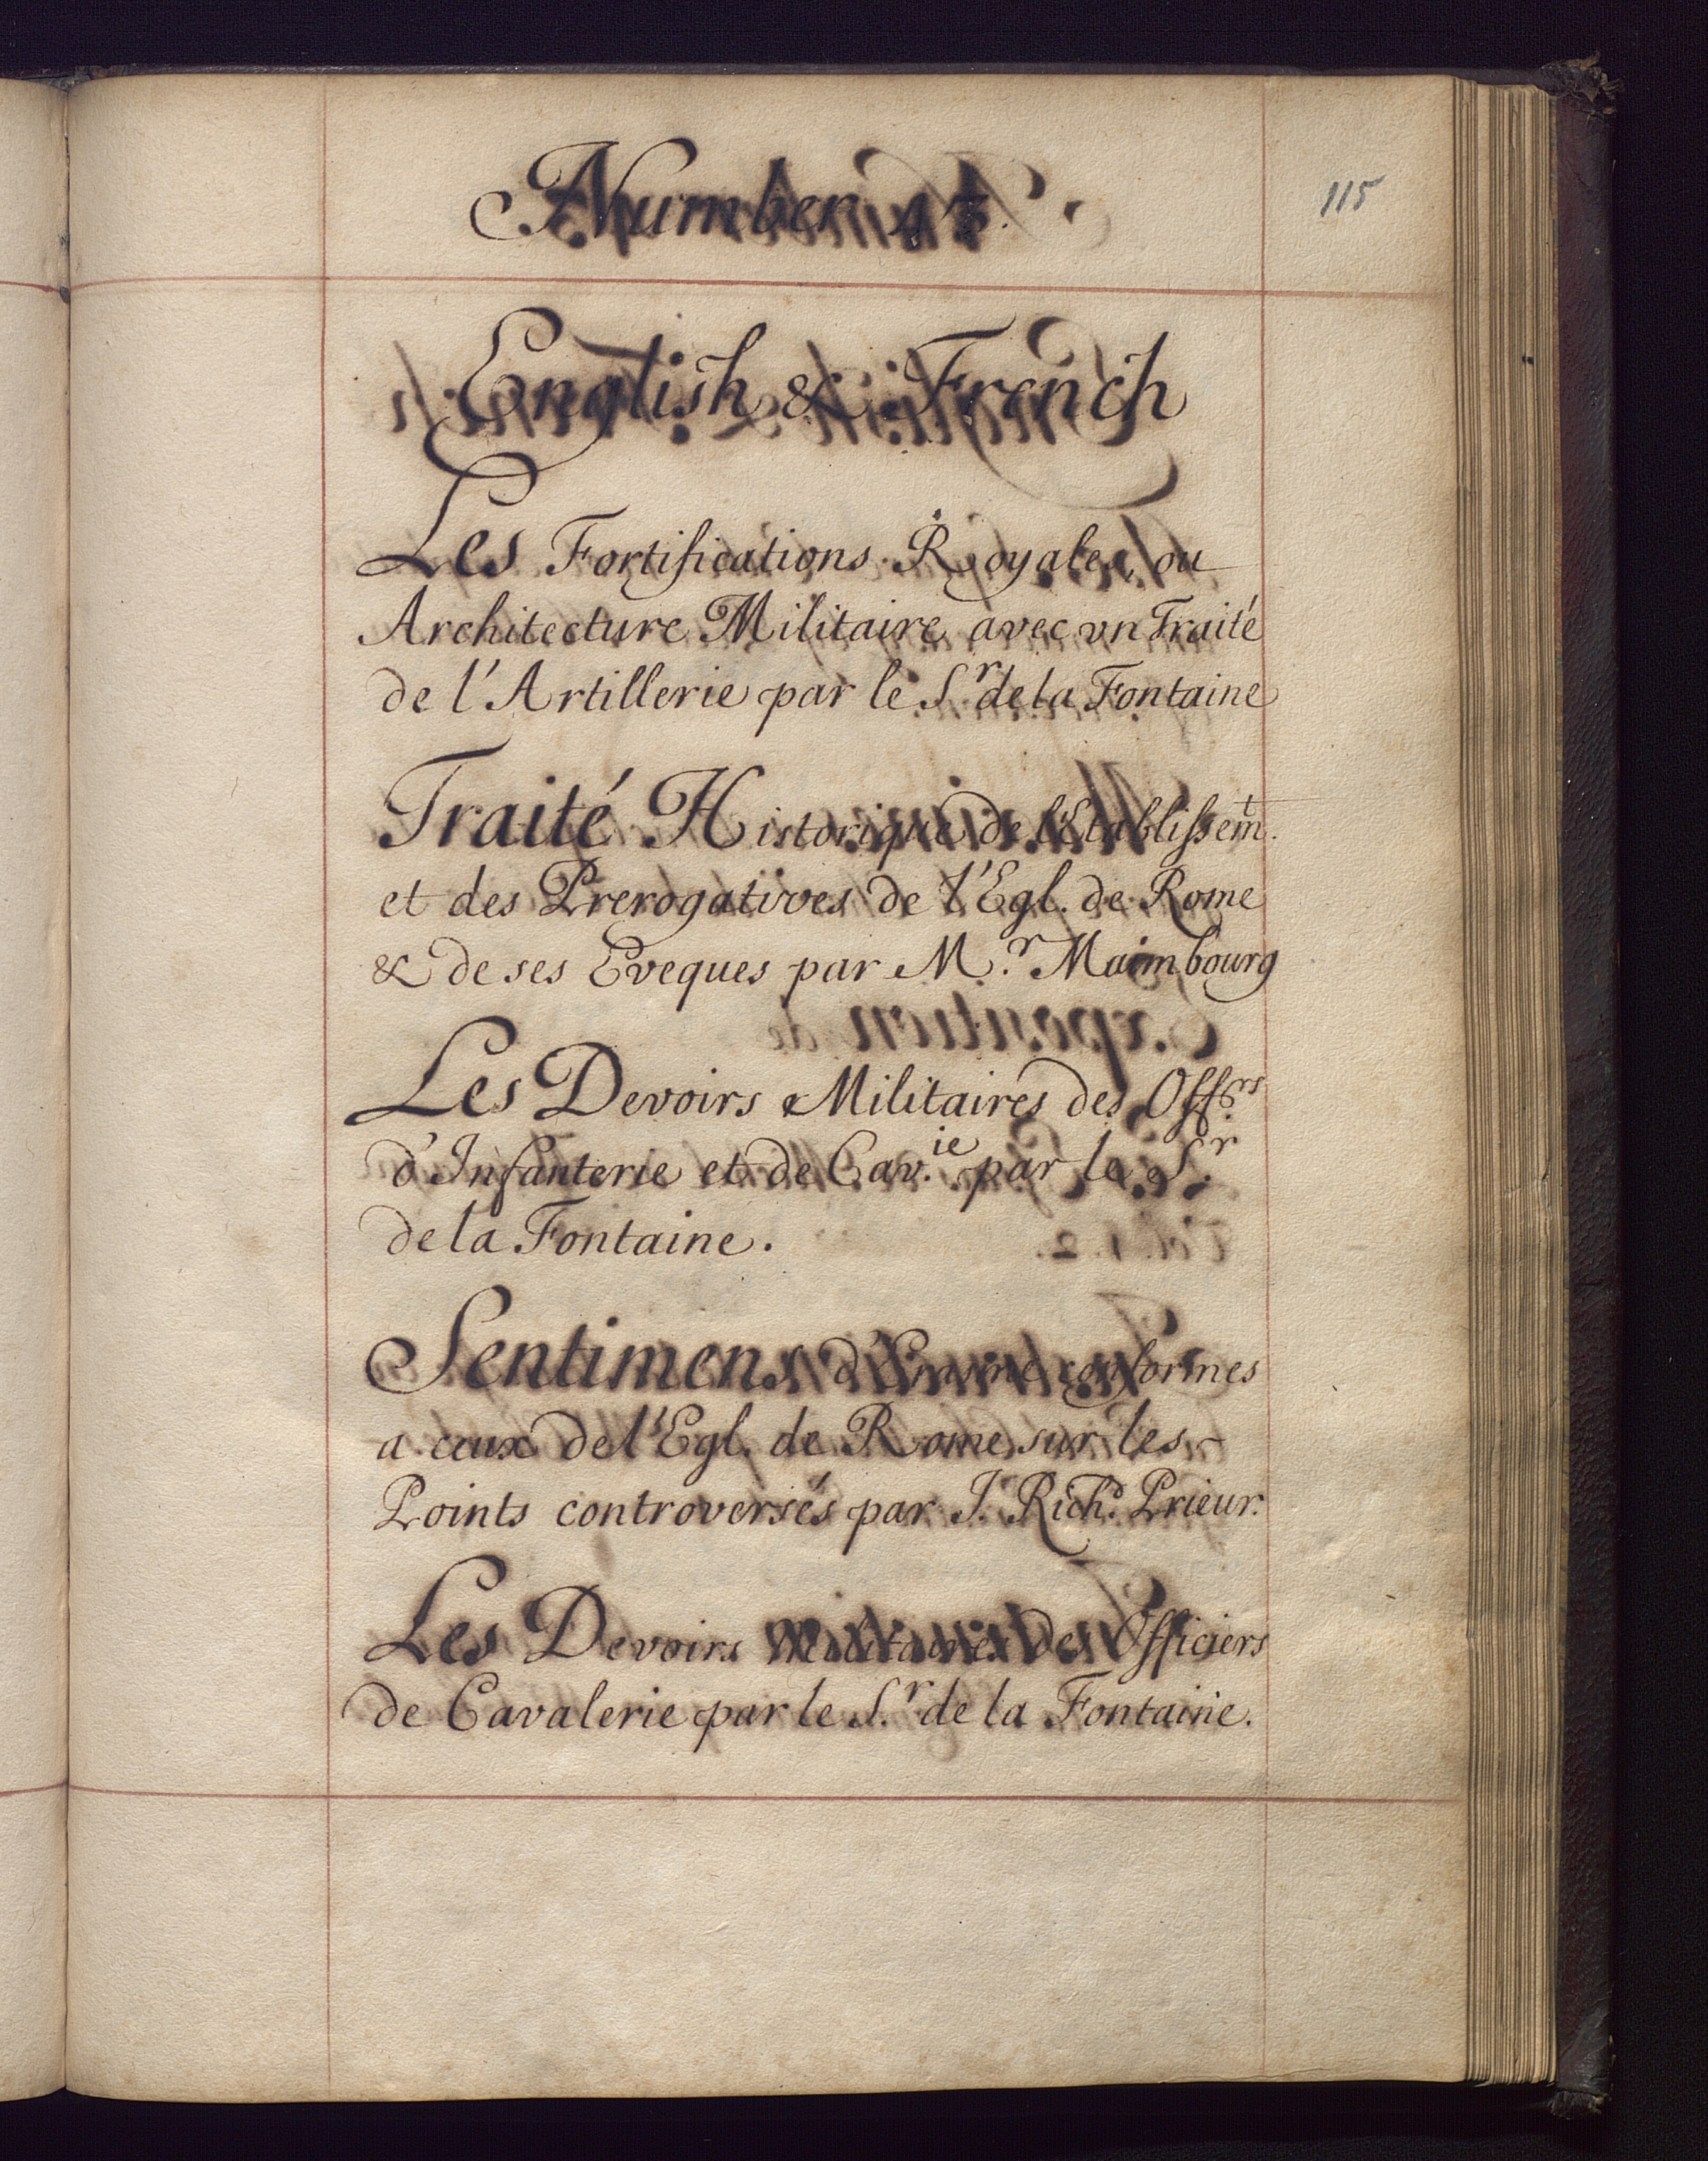 Number
115
English & French
Les Fortifications Royales, ou
Architecture Militaire avec vn Traité
de l'Artillerie par le S.r de la Fontaine
Traité Historique de l'Etablissem.t
et des Prerogatives de l'Egl. de Rome
& de ses Eveques par M.r Maimbourg
Les Devoirs Militaires des Off.rs
d'Infanterie et de Cav.ie par le S.r
de la Fontaine.
Sentimens d'Erasme conformes
a ceux de l'Egl. de Rome sur les
Points controversés par J. Rich.d Prieur.
Les Devoirs Militaires des Officiers
de Cavalerie par le S.r de la Fontaine.